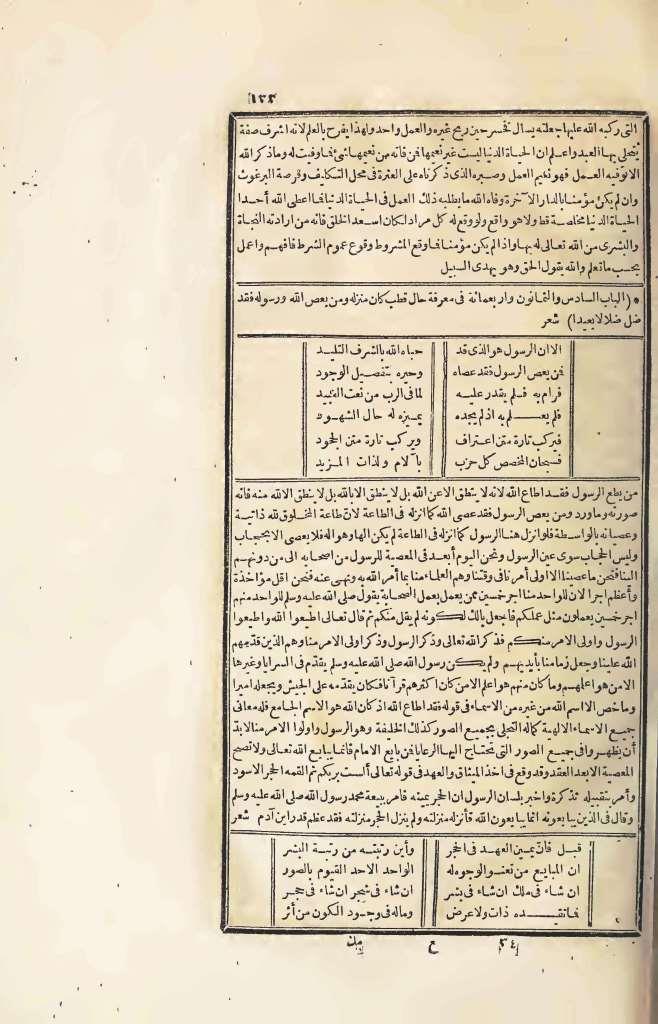 ١٣٣
التى ركبه الله عليها جعلته يسأل تخسر حين ربح غيره والعمل واحد ولهذا يفرح بالعلم لانه اشرف صفة
يتحلى بها العبد واعلم ان الحياة الدنيا ليست غير نعيمها فن فاته من نعيمها شئ فما وفيت له وما ذكر الله
الا توفيه العمل فهو نعيم العمل وصبره الذى ذكرناه على العثرة فى محل التكليف وقرصة البرغوث
وان لم يكن مؤمنا بالدار الآخرة وفاه الله ما يطلبه ذلك العمل فى الحياة الدنيا فما اعطى الله أحدا
الحياة الدنيا مخلصة قط ولا هو واقع ولو وقع له كل مراد لكان اسعد الخلق فانه من ارادته النجاة
والبشرى من الله تعالى له بها واذا لم يكن مؤمنا فما وقع المشروط وقوع عموم الشرط فافهم واعمل
بحسب ما تعلم والله يقول الحق وهو يهدى السبيل
(الباب السادس والثمانون واربعمائة فى معرفة حال قطب كان منزله ومن يعص الله ورسوله فقد
ضل ضلالا بعيدا) شعر
الا ان الرسول هو الذى قد حباه الله بالشرف التليد
فن يعص الرسول فقد عصاه وحيره بتفصيل الوجود
فرام به فلم يقدر عليه لما فى الرب من نعت العبيد
فلم يعلم به اذ لم يجده يميزه له حال الشهود
فيركب تارة متن اعتراف ويركب تارة متن الجحود
فسبحان المخصص كل حزب بآلام ولذات المزيد
من يطع الرسول فقد اطاع الله لانه لا ينطق الا عن الله بل لا ينطق الا بالله بل لا ينطق الا الله منه فانه
صورته وما ورد ومن يعص الرسول فقد عصى الله كما انزله فى الطاعة لان طاعة المخلوق لله ذاتية
وعصيانه بالواسطة فلو انزل هنا الرسول كما انزله فى الطاعة لم يكن الها وهو اله فلا يعصى الا بحجاب
وليس الحجاب سوى عين الرسول ونحن اليوم أبعد فى المعصية للرسول من اصحابه الى من دونهم
الينا فنحن ما عصينا الا اولى أمرنا فى وقتنا وهم العلماء منا بما أمر الله به ونهى عنه فنحن اقل مؤاخذة
وأعظم اجرا لان للواحد منا اجر خمسين ممن يعمل بعمل الصحابة يقول صلى الله عليه وسلم للواحد منهم
اجر خمسين يعملون مثل عملكم فاجعل بالك لكونه لم يقل منكم ثم قال تعالى اطيعوا الله واطيعوا
الرسول واولى الامر منكم فذكر الله تعالى وذكر الرسول وذكر اولى الامر منا وهم الذين قدمهم
الله علينا وجعل زمامنا بأيديهم ولم يكن رسول الله صلى الله عليه وسلم يقدم فى السرايا وغيرها
الا من هو اعلمهم وما كان منهم هو اعلم الا من كان اكثرهم قرآنا فكان يقدمه على الجيش ويجعله اميرا
وما خص الا اسم الله من غيره من الاسماء فى قوله فقد اطاع الله اذ كان الله هو الاسم الجامع فله معانى
جميع الاسماء الالهية كماله التجلى بجميع الصور كذلك الخليفة وهو الرسول واولوا الامر منا لا بد
أن يظهروا فى جميع الصور التى تحتاج اليها الرعايا فن بايع الامام فانما يبايع الله تعالى ولا تصح
المعصية الا بعد العقد وقد وقع فى اخذ الميثاق والعهد فى قوله تعالى ألست بربكم ثم القمه الحجر الاسود
وأمر بتقبيله تذكرة واخبر بلسان الرسول ان الحجر يمينه فامر ببيعة محمد رسول الله صلى الله عليه وسلم
وقال فى الذين يبايعونه انما يبايعون الله فأنزله منزلته ولم ينزل الحجر منزلته فقد عظم قدر ابن آدم شعر
قبل فان يمين العهد فى الحجر وأين رتبته من رتبة البشر
ان المبايع من تعنو الوجوه له الواحد الاحد القيوم بالصور
ان شاء فى ملك ان شاء فى بشر ان شاء فى شجر ان شاء فى حجر
فما تقيده ذات ولا عرض وما له فى وجود الكون من أثر
٣٤ ع مك